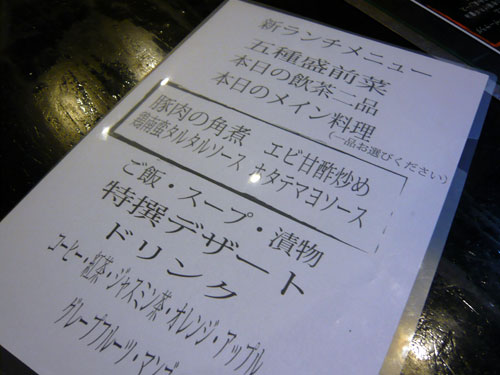 新ランチメニュー
五種盛前菜
本日の飲茶二品
本日のメイン料理
(一品お選びください)
豚肉の角煮 エビ甘酢炒め
鶏南蛮タルタルソース ホタテマヨソース
ご飯・スープ・漬物
特撰デザート
ドリンク
コーヒー・紅茶・ジャスミン茶・オレンジ・アップル
グレープフルーツ・マンゴ